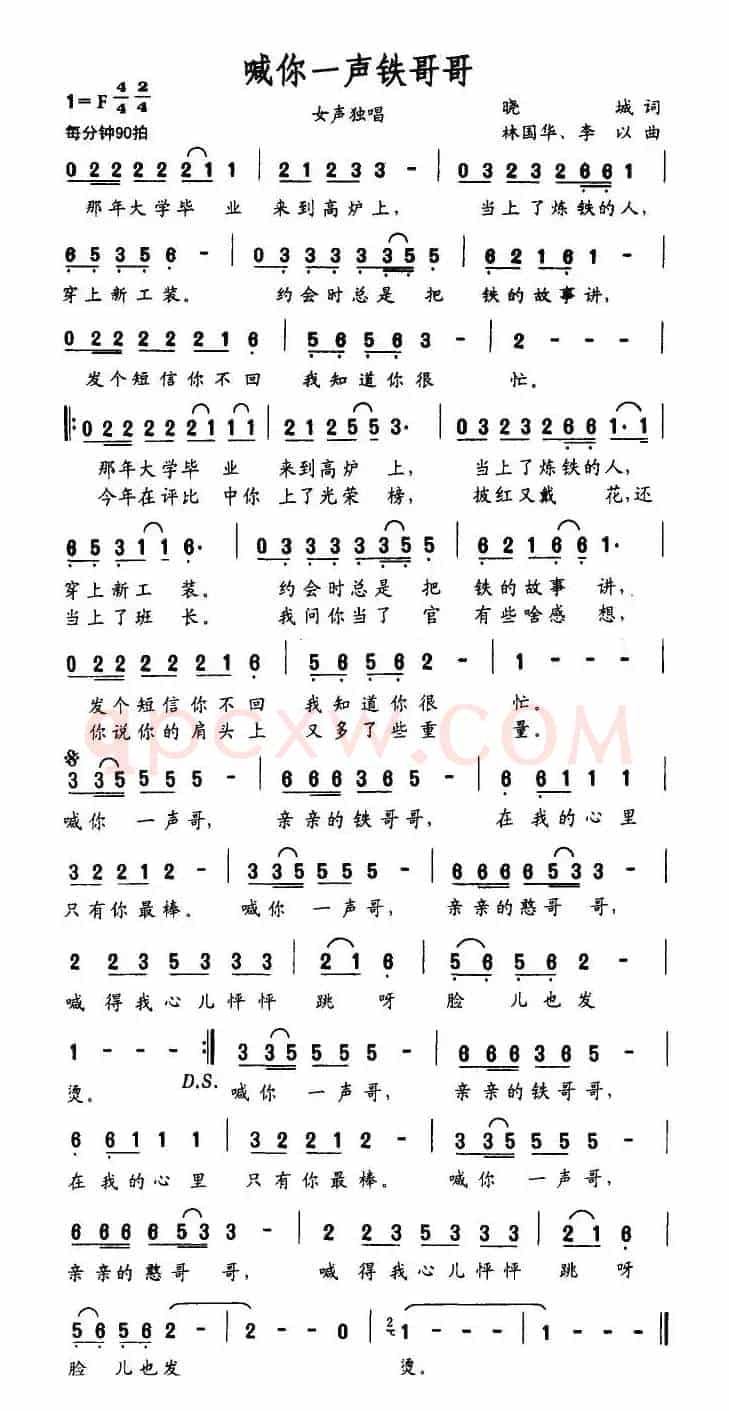 喊你一声铁哥哥
1=F 4/4 2/4
女声独唱
晓 城 词
每分钟90拍
林国华、李 以 曲
0 2 2 2 2 2 2 1 1 | 2 1 2 3 3 - | 0 3 2 3 2 6 6 1 |
那年大学毕 业 来到高炉上， 当上了炼铁的人，
6 5 3 5 6 - | 0 3 3 3 3 3 5 5 | 6 2 1 6 1 - |
穿上新工装。 约会时总是 把 铁的故事讲，
0 2 2 2 2 2 2 1 6 | 5 6 5 6 3 - | 2 - - - |
发个短信你不回 我知道你很 忙。
‖: 0 2 2 2 2 2 2 1 1 1 | 2 1 2 5 5 3· | 0 3 2 3 2 6 6 1· 1 |
那年大学毕 业 来到高炉 上， 当上了炼铁的人，
今年在评比 中你 上了光荣 榜， 披红又戴 花，还
6 5 3 1 1 6· | 0 3 3 3 3 3 5 5 | 6 2 1 6 6 1· |
穿上新工 装。 约会时总是 把 铁的故事 讲，
当上了班 长。 我问你当了 官 有些啥感 想，
0 2 2 2 2 2 2 1 6 | 5 6 5 6 2 - | 1 - - - |
发个短信你不回 我知道你很 忙。
你说你的肩头上 又多了些重 量。
qpcxw.com
3 3 5 5 5 5 - | 6 6 6 3 6 6 - | 6 6 1 1 1 |
喊你 一声哥， 亲亲的铁哥哥， 在我的心里
3 2 2 1 2 - | 3 3 5 5 5 5 - | 6 6 6 6 5 3 3 - |
只有你最棒。 喊你 一声哥， 亲亲的憨哥 哥，
2 2 3 5 3 3 3 | 2 1 6 | 5 6 5 6 2 - |
喊得我心儿怦怦 跳 呀 脸 儿也发
1 - - - :‖ 3 3 5 5 5 5 - | 6 6 6 3 6 6 - |
烫。 D.S. 喊你 一声哥， 亲亲的铁哥哥，
6 6 1 1 1 | 3 2 2 1 2 - | 3 3 5 5 5 5 - |
在我的心里 只有你最棒。 喊你 一声哥，
6 6 6 6 5 3 3 - | 2 2 3 5 3 3 3 | 2 1 6 |
亲亲的憨哥 哥， 喊得我心儿怦怦 跳 呀
5 6 5 6 2 - | 2 - - 0 | 2 1 - - - | 1 - - - ‖
脸 儿也发 烫。